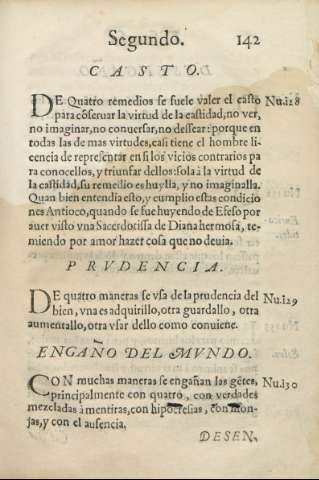 Segundo. 142
CASTO.
DE Quatro remedios se suele valer el casto Nu.128
para cõseruar la virtud de la castidad, no ver,
no imaginar, no conuersar, no dessear: porque en
todas las de mas virtudes, casi tiene el hombre li
cencia de representar en si los vicios contrarios pa
ra conocellos, y triunfar dellos: sola à la virtud de
la castidad, su remedio es huylla, y no imaginalla.
Quan bien entendia esto, y cumplio estas condicio
nes Antioco, quando se fue huyendo de Efeso por
auer visto vna Sacerdotissa de Diana hermosa, te-
miendo por amor hazer cosa que no deuia.
PRVDENCIA.
DE quatro maneras se vsa de la prudencia del Nu.129
bien, vna es adquirillo, otra guardallo, otra
aumentallo, otra vsar dello como conuiene.
ENGAÑO DEL MVNDO.
CON muchas maneras se engañan las gẽtes, Nu.130
principalmente con quatro, con verdades
mezcladas à mentiras, con hipocresias, con mon-
jas, y con el ausencia.
DESEN,